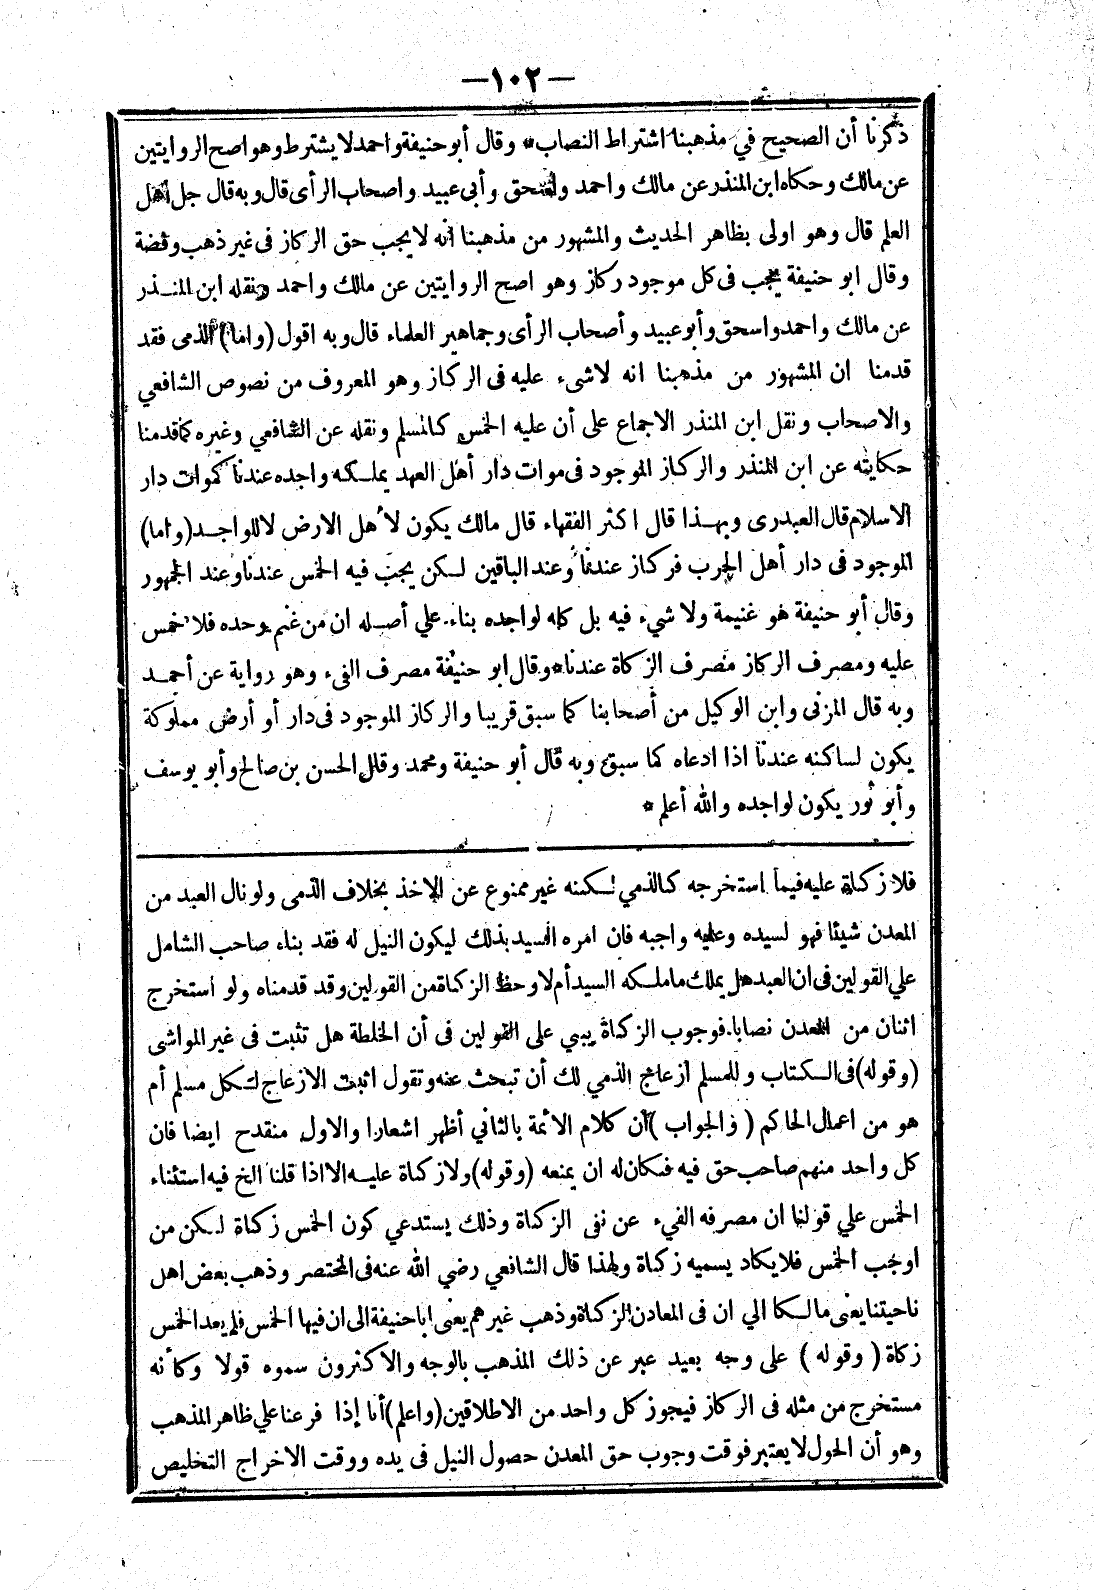 —١٠٢—
ذكرنا أن الصحيح في مذهبنا اشتراط النصاب* وقال أبو حنيفة واحمد لا يشترط وهو اصح الروايتين
عن مالك وحكاه ابن المنذر عن مالك واحمد واسحق وأبى عبيد واصحاب الرأى قال وبه قال جل أهل
العلم قال وهو اولى بظاهر الحديث والمشهور من مذهبنا انه لا يجب حق الركاز فى غير ذهب وفضة
وقال ابو حنيفة يجب فى كل موجود ركاز وهو اصح الروايتين عن مالك واحمد ونقله ابن المنذر
عن مالك واحمد واسحق وأبو عبيد وأصحاب الرأى وجماهير العلماء قال وبه اقول (واما) الذمى فقد
قدمنا ان المشهور من مذهبنا انه لاشىء عليه فى الركاز وهو المعروف من نصوص الشافعي
والاصحاب ونقل ابن المنذر الاجماع على أن عليه الخمس كالمسلم ونقله عن الشافعي وغيره كما قدمنا
حكايته عن ابن المنذر والركاز الموجود فى موات دار أهل العهد يملكه واجده عندنا كموات دار
الاسلام قال العبدرى وبهذا قال اكثر الفقهاء قال مالك يكون لأهل الارض لا للواجد (واما)
الموجود فى دار أهل الحرب فركاز عندنا وعند الباقين لكن يجب فيه الخمس عندنا وعند الجمهور
وقال أبو حنيفة هو غنيمة ولا شيء فيه بل كله لواجده بناء علي أصله ان من غنم وحده فلا خمس
عليه ومصرف الركاز مصرف الزكاة عندنا* وقال ابو حنيفة مصرف الفىء وهو رواية عن أحمد
وبه قال المزنى وابن الوكيل من أصحابنا كما سبق قريبا والركاز الموجود فى دار أو أرض مملوكة
يكون لساكنه عندنا اذا ادعاه كما سبق وبه قال أبو حنيفة ومحمد وقال الحسن بن صالح وأبو يوسف
وأبو ثور يكون لواجده والله أعلم *
فلا زكاة عليه فيما استخرجه كالذمي لكنه غير ممنوع عن الاخذ بخلاف الذمى ولو نال العبد من
المعدن شيئا فهو لسيده وعليه واجبه فان امره السيد بذلك ليكون النيل له فقد بناء صاحب الشامل
علي القولين فى ان العبد هل يملك ما ملكه السيد أم لا وحظ الزكاة من القولين وقد قدمناه ولو استخرج
اثنان من المعدن نصابا فوجوب الزكاة يبي على القولين فى أن الخلطة هل تثبت فى غير المواشى
(وقوله) فى الكتاب وللمسلم ازعاج الذمي لك أن تبحث عنه وتقول اثبت الازعاج لكل مسلم أم
هو من اعمال الحاكم (والجواب) أن كلام الأئمة بالثاني أظهر اشعارا والاول منقدح ايضا فان
كل واحد منهم صاحب حق فيه فكان له ان يمنعه (وقوله) ولا زكاة عليه الا اذا قلنا الخ فيه استثناء
الخمس علي قولنا ان مصرفه الفيء عن نفى الزكاة وذلك يستدعي كون الخمس زكاة لكن من
اوجب الخمس فلا يكاد يسميه زكاة ولهذا قال الشافعي رضي الله عنه فى المختصر وذهب بعض اهل
ناحيتنا يعنى مالكا الي ان فى المعادن الزكاة وذهب غيرهم يعنى ابا حنيفة الى ان فيها الخمس فلم يعد الخمس
زكاة (وقوله) على وجه بعيد عبر عن ذلك المذهب بالوجه والاكثرون سموه قولا وكأنه
مستخرج من مثله فى الركاز فيجوز كل واحد من الاطلاقين (واعلم) أنا إذا فرعنا علي ظاهر المذهب
وهو أن الحول لا يعتبر فوقت وجوب حق المعدن حصول النيل فى يده ووقت الاخراج التخليص